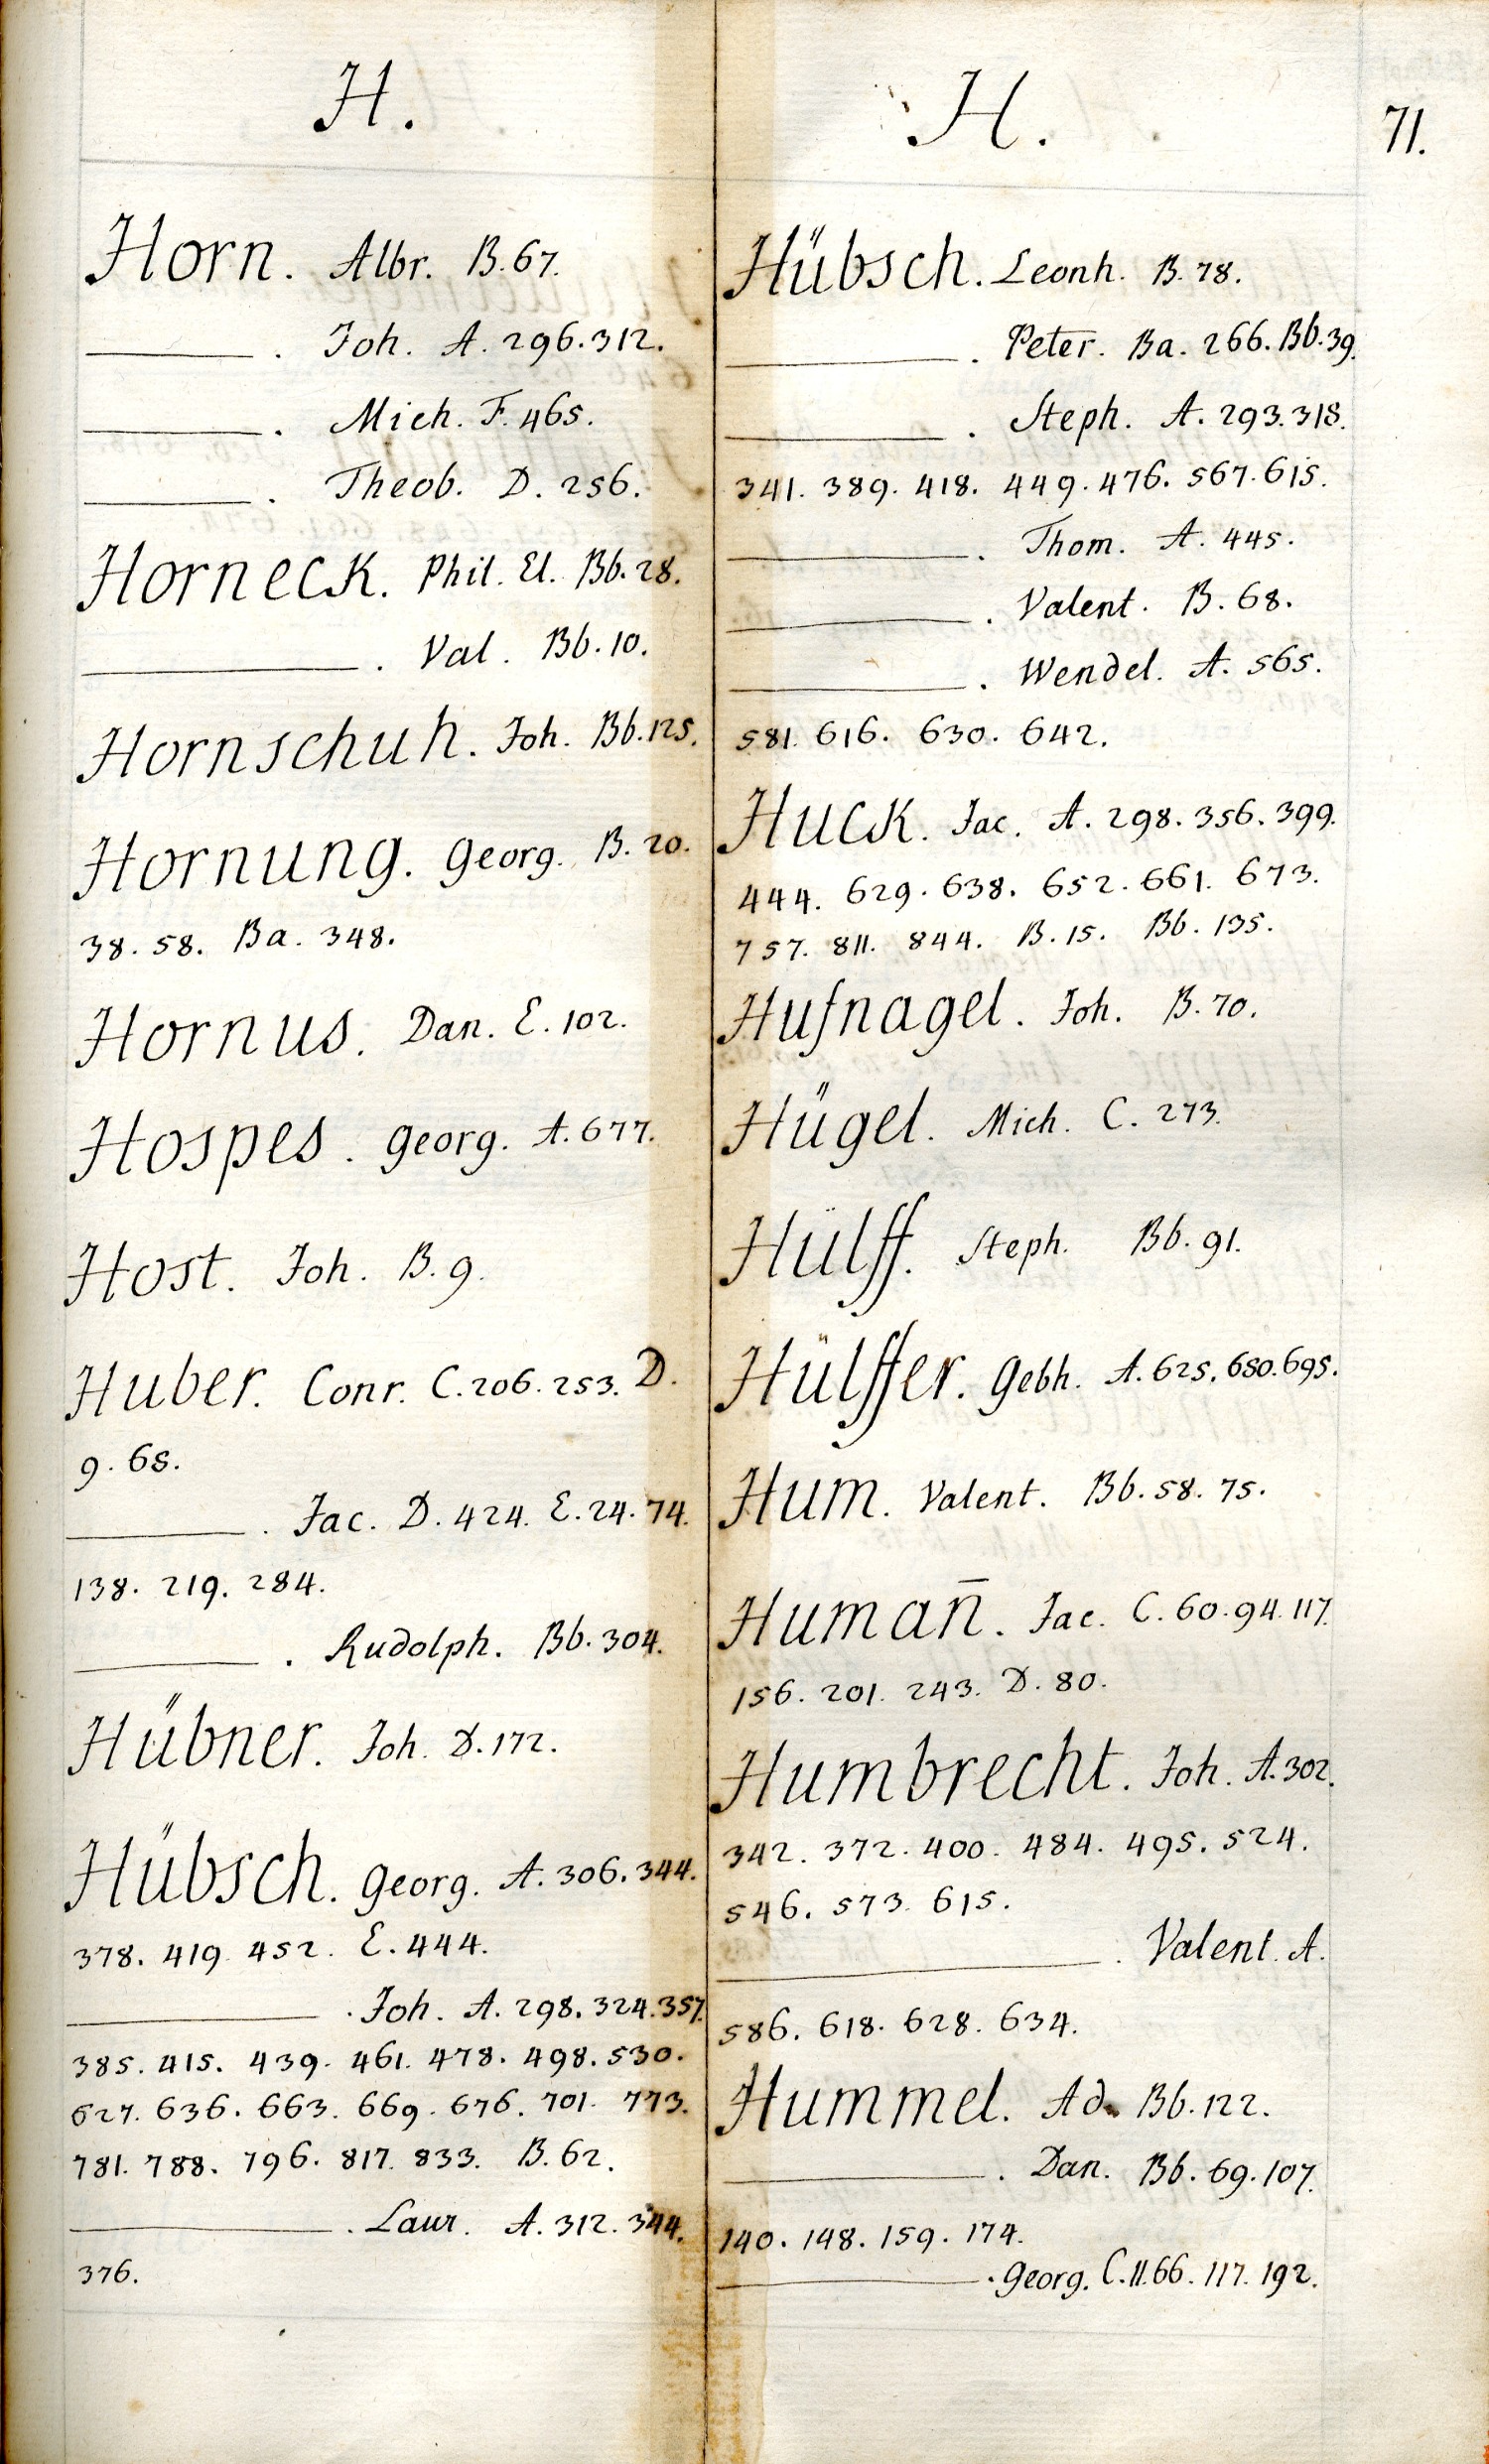 H.
Horn. Albr. B. 67.
———. Joh. A. 296. 312.
———. Mich. F. 465.
———. Theob. D. 256.
Horneck. Phil. El. Bb. 28.
———. Val. Bb. 10.
Hornschuh. Joh. Bb. 125.
Hornung. Georg. B. 20.
38. 58. Ba. 348.
Hornus. Dan. E. 102.
Hospes. Georg. A. 677.
Host. Joh. B. 9.
Huber. Conr. C. 206. 253. D.
9. 68.
———. Jac. D. 424. E. 24. 74.
138. 219. 284.
———. Rudolph. Bb. 304.
Hübner. Joh. D. 172.
Hübsch. Georg. A. 306. 344.
378. 419. 452. E. 444.
———. Joh. A. 298. 324. 357.
385. 415. 439. 461. 478. 498. 530.
627. 636. 663. 669. 676. 701. 773.
781. 788. 796. 817. 833. B. 62.
———. Laur. A. 312. 344.
376.
H.
71.
Hübsch. Leonh. B. 78.
———. Peter. Ba. 266. Bb. 39.
———. Steph. A. 293. 318.
341. 389. 418. 449. 476. 567. 615.
———. Thom. A. 445.
———. Valent. B. 68.
———. Wendel. A. 565.
581. 616. 630. 642.
Huck. Jac. A. 298. 356. 399.
444. 629. 638. 652. 661. 673.
757. 811. 844. B. 15. Bb. 135.
Hufnagel. Joh. B. 70.
Hügel. Mich. C. 273.
Hülff. Steph. Bb. 91.
Hülffer. Gebh. A. 625. 680. 695.
Hum. Valent. Bb. 58. 75.
Human̄. Jac. C. 60. 94. 117.
156. 201. 243. D. 80.
Humbrecht. Joh. A. 302.
342. 372. 400. 484. 495. 524.
546. 573. 615.
———. Valent. A.
586. 618. 628. 634.
Hummel. Ad. Bb. 122.
———. Dan. Bb. 69. 107.
140. 148. 159. 174.
———. Georg. C. 11. 66. 117. 192.